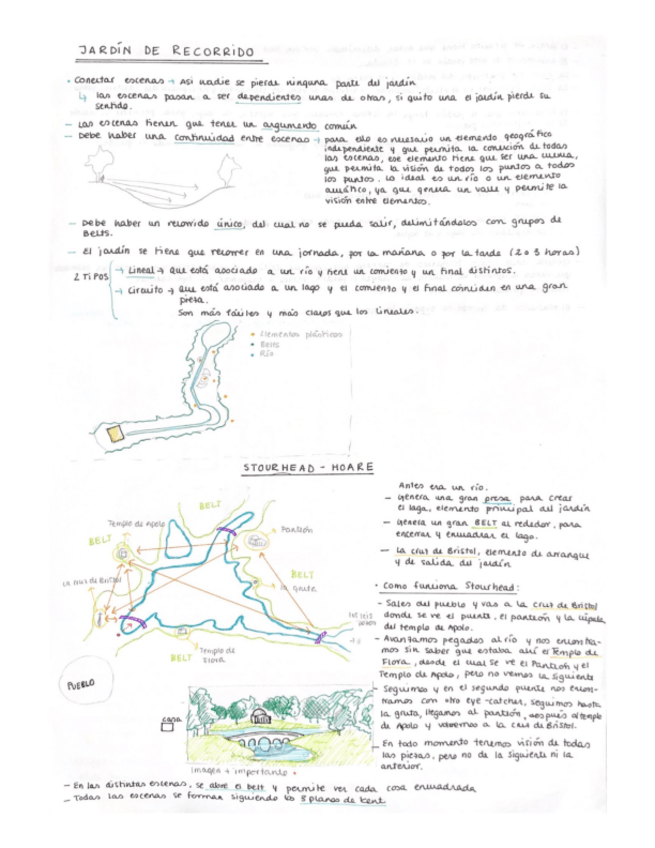 JARDÍN DE RECORRIDO
• Conectar escenas → Así nadie se pierde ninguna parte del jardín
↳ las escenas pasan a ser dependientes unas de otras, si quito una el jardín pierde su
sentido.
- Las escenas tienen que tener un argumento común
- Debe haber una continuidad entre escenas → para ello es necesario un elemento geográfico
independiente y que permita la conexión de todas
las escenas, ese elemento tiene que ser una
que permita la visión de todos los puntos a todos
los puntos. Lo ideal es un río o un elemento
acuático, ya que genera un valle y permite la
visión entre elementos.
- Debe haber un recorrido único, del cual no se pueda salir, delimitándolos con grupos de
Belts.
- El jardín se tiene que recorrer en una jornada, por la mañana o por la tarde (2 o 3 horas)
2 TIPOS
→ Lineal → Que está asociado a un río y tiene un comienzo y un final distintos.
→ Circuito → que está asociado a un lago y el comienzo y el final coinciden en una gran
pieza.
Son más fáciles y más claros que los lineales.
• Elementos plásticos
• Belts
• Río
STOURHEAD - HOARE
Antes era un río.
- Genera una gran presa para crear
el lago, elemento principal del jardín
- Genera un gran BELT al rededor, para
encerrar y enmarcar el lago.
- La cruz de Bristol, elemento de arranque
y de salida del jardín
• Como funciona Stourhead:
- Sales del pueblo y vas a la cruz de Bristol
donde se ve el puente, el panteón y la cúpula
del templo de Apolo.
- Avanzamos pegados al río y nos encontra-
mos sin saber que estaba ahí el Templo de
Flora, desde el cual se ve el Panteón y el
Templo de Apolo, pero no vemos la siguiente
- Seguimos y en el segundo puente nos encon-
tramos con otro eye-catcher, seguimos hasta
la gruta, llegamos al panteón, después al templo
de Apolo y volvemos a la cruz de Bristol.
- En todo momento tenemos visión de todas
las piezas, pero no de la siguiente ni la
anterior.
BELT
Templo de Apolo
BELT
Panteón
BELT
la gruta
La cruz de Bristol
Templo de
Flora
BELT
PUEBLO
casa
Imagen + importante
- En las distintas escenas, se abre el belt y permite ver cada cosa enmarcada
- Todas las escenas se forman siguiendo los 3 planos de Kent